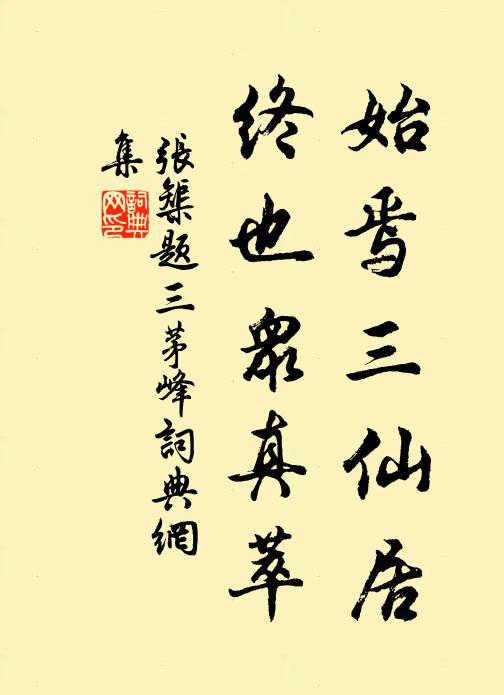 始焉三仙居
終也眾真萃
張榘題三茅峰詞典網
集
詞典
网印